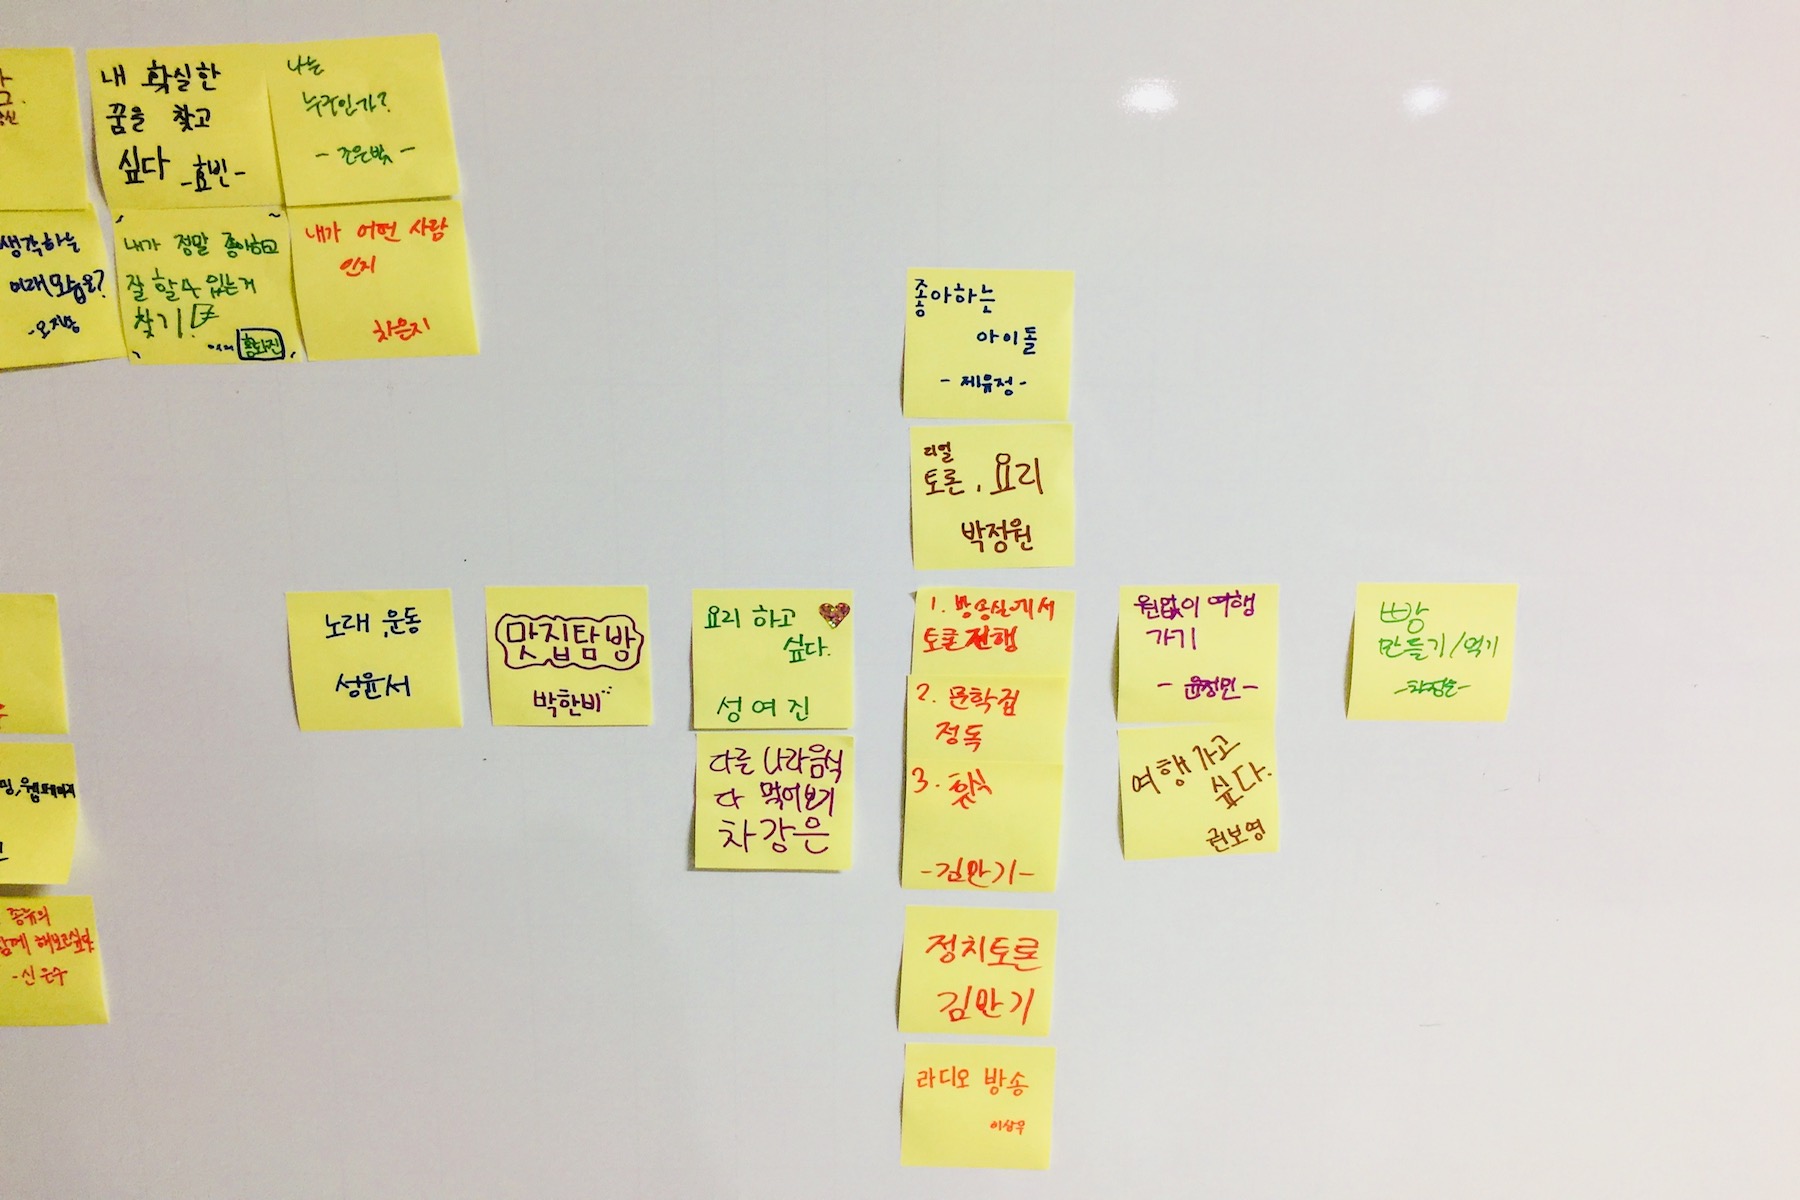 내 확실한
꿈을 찾고
싶다 -효빈-
나는
누구인가?
- 조은빛 -
생각하는
미래모습은?
내가 정말 좋아하고
잘 할 수 있는거
찾기!
내가 어떤 사람
인지
차은지
좋아하는
아이돌
- 제유정 -
리얼
토론, 요리
박정원
노래, 운동
성윤서
맛집탐방
박한비
요리 하고
싶다.
성여진
다른 나라음식
다 먹어보기
차강은
1. 방송실에서
토론 진행
2. 문학집
정독
3. 휴식
-김만기-
원없이 여행
가기
- 윤정민 -
여행 가고
싶다.
권보영
빵
만들기/먹기
정치토론
김만기
라디오 방송
이상우
종류의
해보고싶다
-신은수